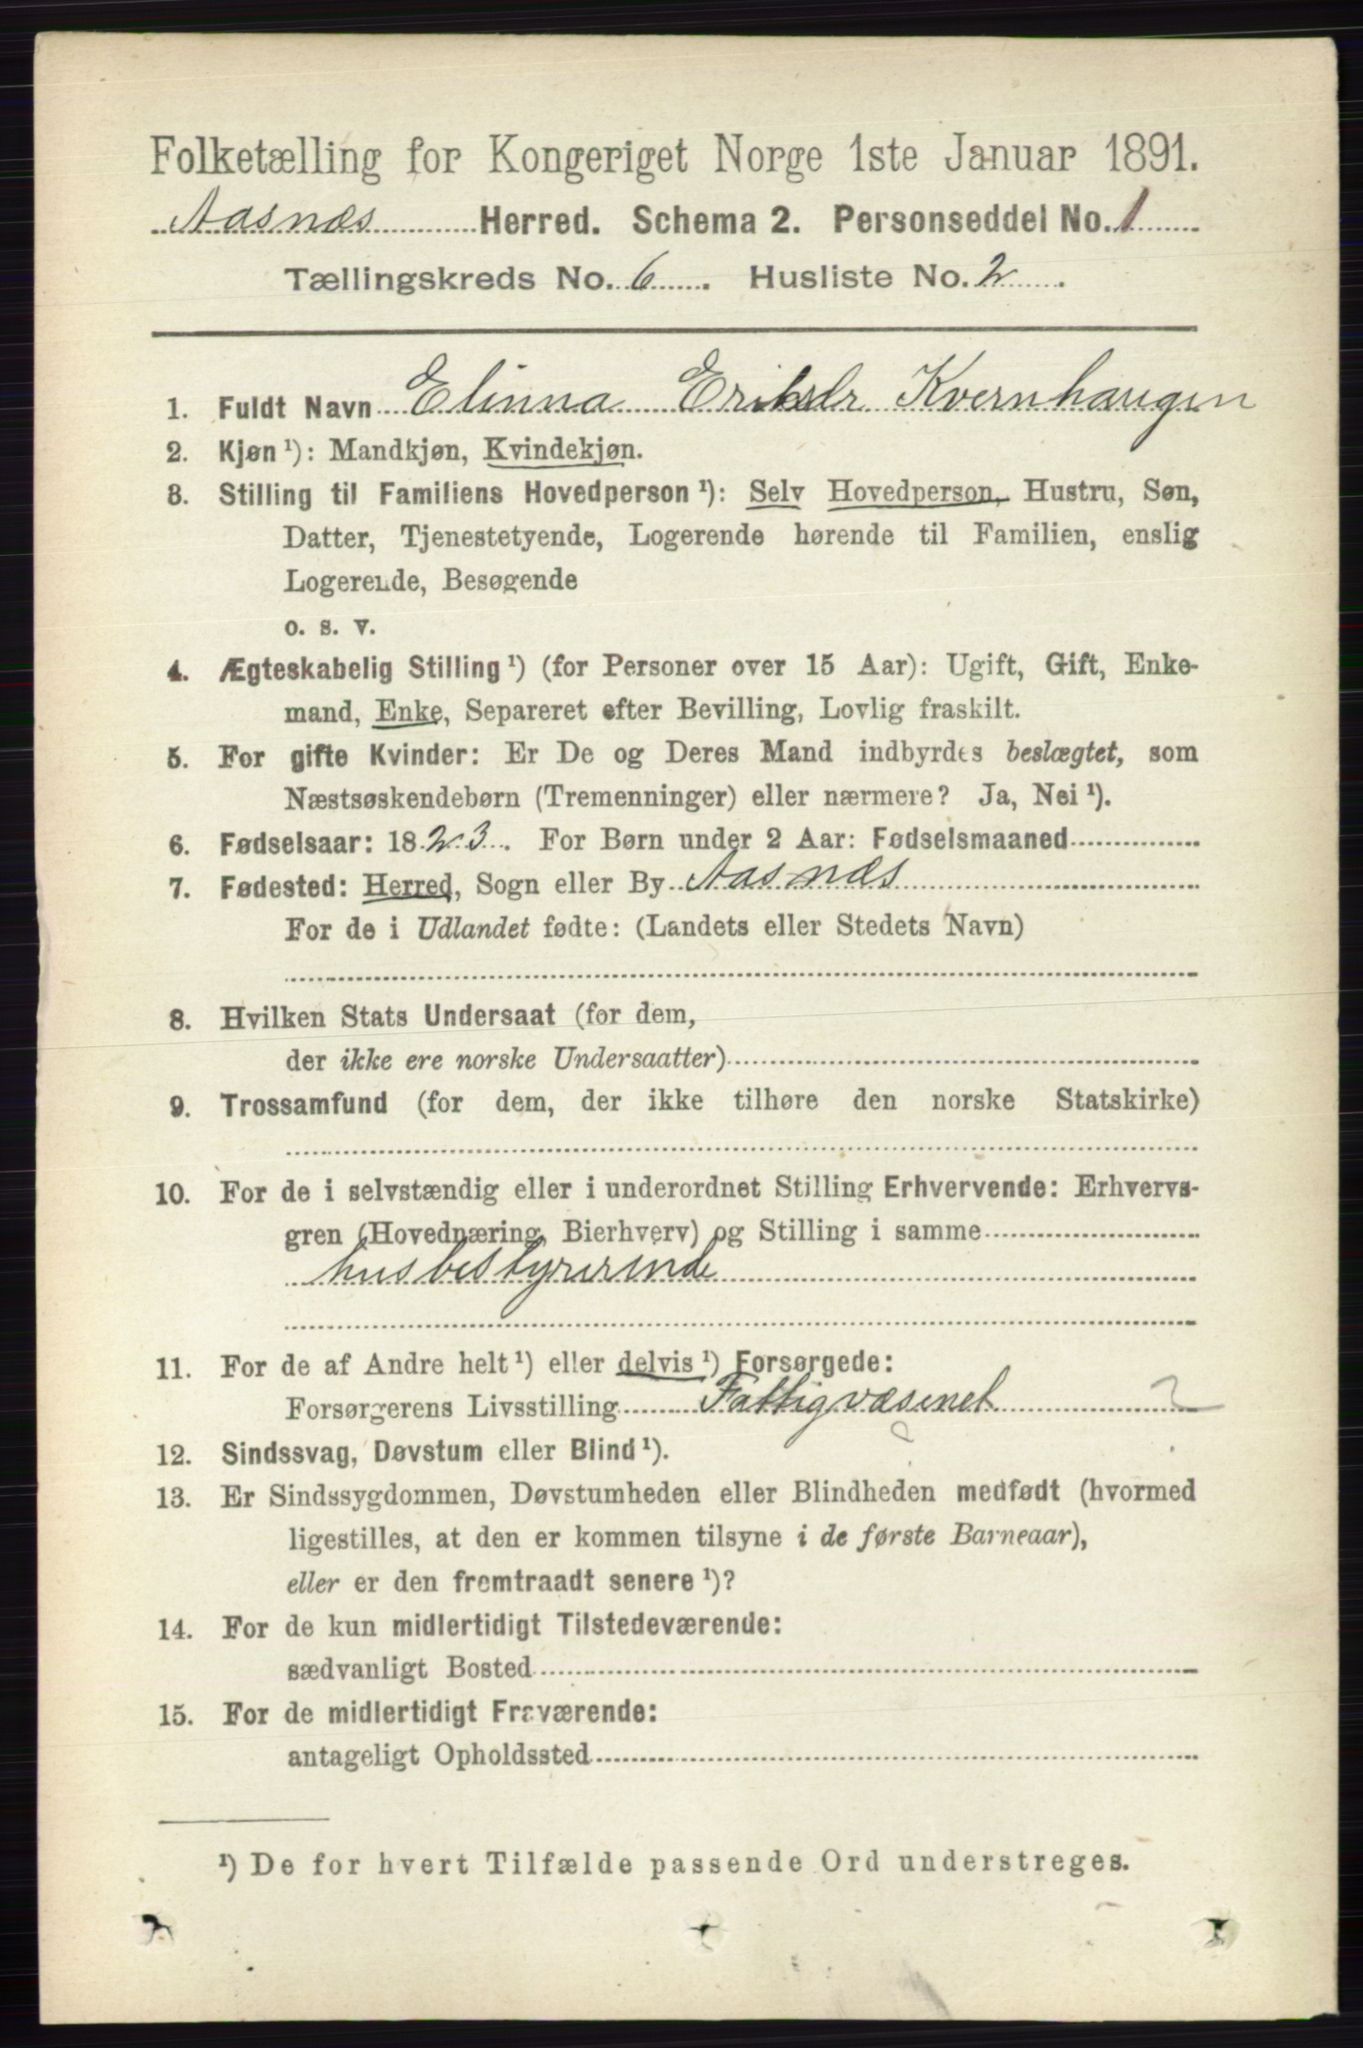 Folketælling for Kongeriget Norge 1ste Januar 1891.
Aasnæs Herred. Schema 2. Personseddel No. 1
Tællingskreds No. 6. Husliste No. 2.
1. Fuldt Navn Elinna Eriksdr Kvernhaugen
2. Kjøn ¹): Mandkjøn, Kvindekjøn.
3. Stilling til Familiens Hovedperson ¹): Selv Hovedperson, Hustru, Søn,
Datter, Tjenestetyende, Logerende hørende til Familien, enslig
Logerende, Besøgende
o. s. v.
4. Ægteskabelig Stilling ¹) (for Personer over 15 Aar): Ugift, Gift, Enke-
mand, Enke, Separeret efter Bevilling, Lovlig fraskilt.
5. For gifte Kvinder: Er De og Deres Mand indbyrdes beslægtet, som
Næstsøskendebørn (Tremenninger) eller nærmere? Ja, Nei ¹).
6. Fødselsaar: 1823. For Børn under 2 Aar: Fødselsmaaned
7. Fødested: Herred, Sogn eller By Aasnæs
For de i Udlandet fødte: (Landets eller Stedets Navn)
8. Hvilken Stats Undersaat (for dem,
der ikke ere norske Undersaatter)
9. Trossamfund (for dem, der ikke tilhøre den norske Statskirke)
10. For de i selvstændig eller i underordnet Stilling Erhvervende: Erhvervs-
gren (Hovednæring, Bierhverv) og Stilling i samme
husbestyrerinde
11. For de af Andre helt ¹) eller delvis ¹) Forsørgede:
Forsørgerens Livsstilling Fattigvæsenet 2
12. Sindssvag, Døvstum eller Blind ¹).
13. Er Sindssygdommen, Døvstumheden eller Blindheden medfødt (hvormed
ligestilles, at den er kommen tilsyne i de første Barneaar),
eller er den fremtraadt senere ¹)?
14. For de kun midlertidigt Tilstedeværende:
sædvanligt Bosted
15. For de midlertidigt Fraværende:
antageligt Opholdssted
¹) De for hvert Tilfælde passende Ord understreges.